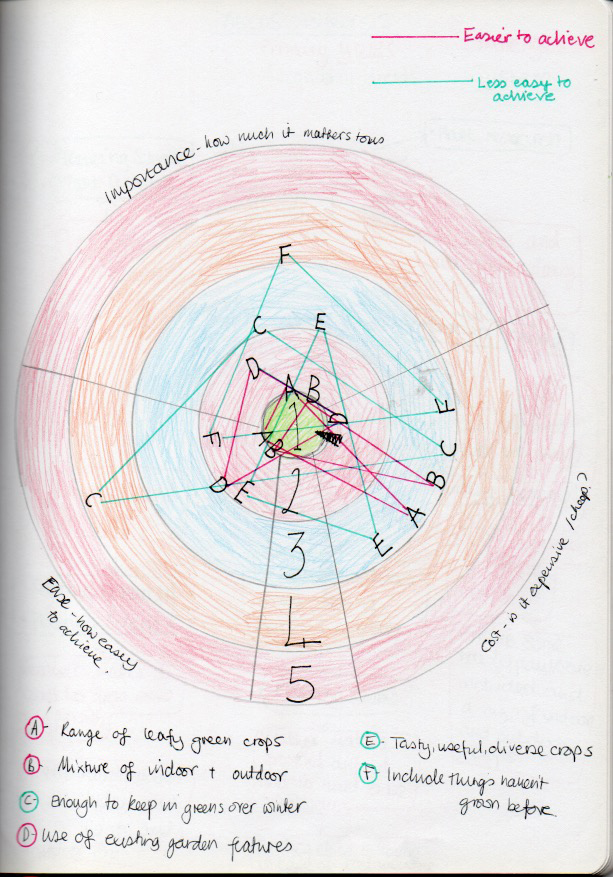 Easier to achieve
Less easy to
achieve
importance - how much it matters to us
F
C
E
D
A
B
1
D
F
E
C
F
A
B
B
D
E
A
C
2
E
3
4
5
Ease - how easy
to achieve.
Cost - is it expensive / cheap?
A - Range of leafy green crops
B - Mixture of indoor + outdoor
C - Enough to keep in greens over winter
D - Use of existing garden features
E - Tasty, useful, diverse crops
F - Include things haven't
grown before